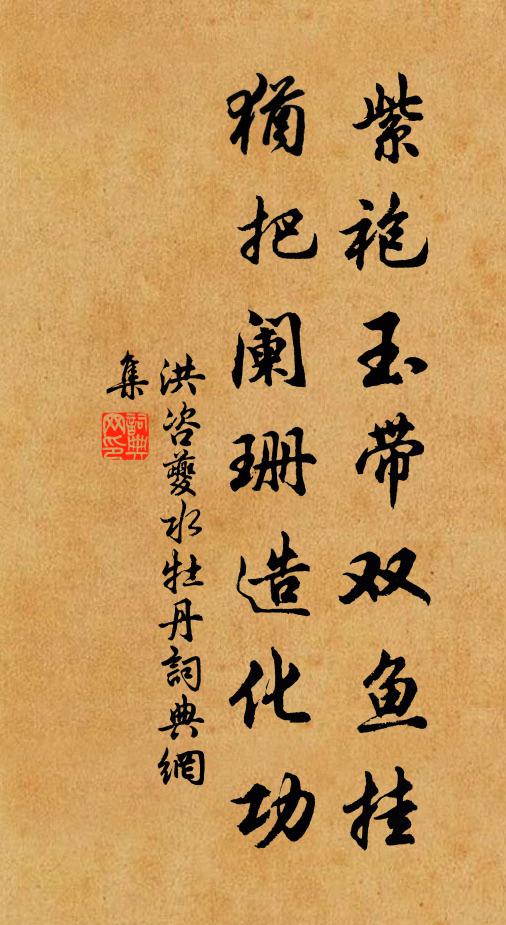 紫袍玉带双鱼挂
犹把阑珊造化功
洪咨夔水牡丹詞典網
集
詞典网印